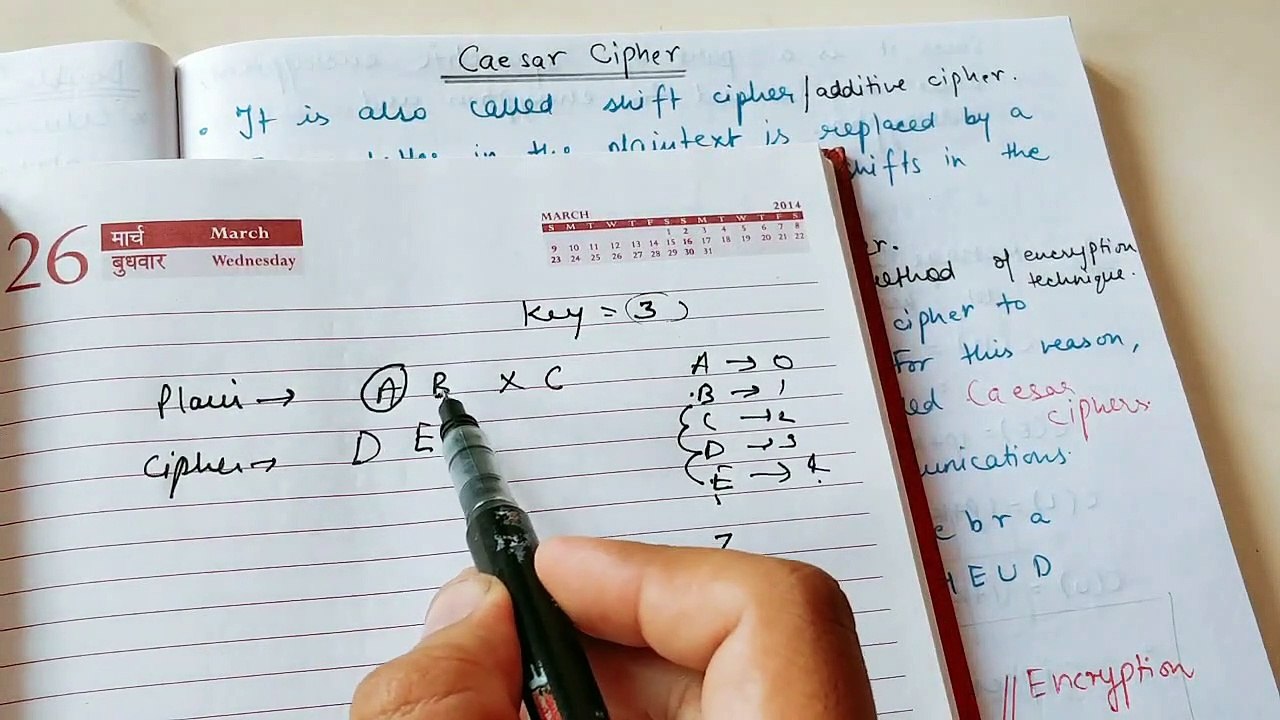 Caesar Cipher
. It is also called shift cipher/additive cipher.
in the plaintext is replaced by a
shifts in the
26 मार्च March
बुधवार Wednesday
MARCH 2014
S M T W T F S S M T W T F S
1 2 3 4 5 6 7 8
9 10 11 12 13 14 15 16 17 18 19 20 21 22
23 24 25 26 27 28 29 30 31
er.
method of encryption
technique.
Key = 3
cipher to
For this reason,
Caesar
ciphers.
Plain → A B X C
Cipher → D E
A → 0
B → 1
C → 2
D → 3
E → 4
Z
unications.
e b r a
H E U D
// Encryption